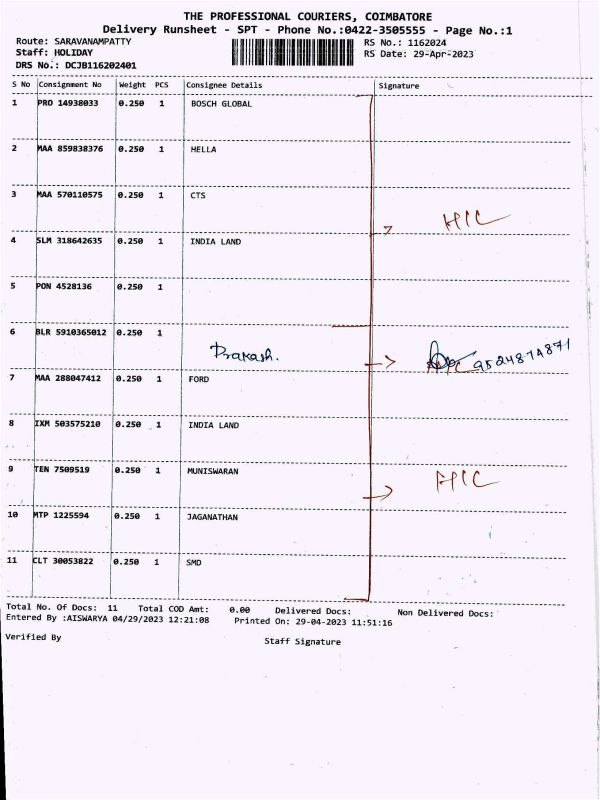 THE PROFESSIONAL COURIERS, COIMBATORE
Delivery Runsheet - SPT - Phone No.:0422-3505555 - Page No.:1
Route: SARAVANAMPATTY RS No.: 1162024
Staff: HOLIDAY RS Date: 29-Apr-2023
DRS No.: DCJB116202401
S No Consignment No Weight PCS Consignee Details Signature
1 PRO 14938033 0.250 1 BOSCH GLOBAL
2 MAA 859838376 0.250 1 HELLA
3 MAA 570110575 0.250 1 CTS
HIC
4 SLM 318642635 0.250 1 INDIA LAND
5 PON 4528136 0.250 1
6 BLR 5910365012 0.250 1
Prakash. 9524874871
7 MAA 288047412 0.250 1 FORD
8 IXM 503575210 0.250 1 INDIA LAND
9 TEN 7509519 0.250 1 MUNISWARAN
HIC
10 MTP 1225594 0.250 1 JAGANATHAN
11 CLT 30053822 0.250 1 SMD
Total No. Of Docs: 11 Total COD Amt: 0.00 Delivered Docs: Non Delivered Docs:
Entered By :AISWARYA 04/29/2023 12:21:08 Printed On: 29-04-2023 11:51:16
Verified By Staff Signature